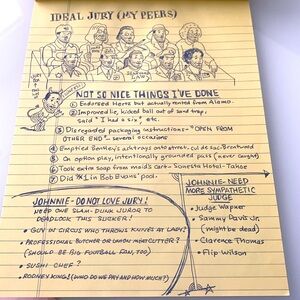 IDEAL JURY (MY PEERS)
NOT SO NICE THINGS I'VE DONE
① Endorsed Hertz but actually rented from Alamo.
② Improved lie, kicked ball out of sand trap,
said "I had a six", etc.
③ Disregarded packaging instructions - "OPEN FROM
OTHER END" several occasions
④ Emptied Bentley's ashtrays onto street. Cul de sac Brentwood
⑤ On option play, intentionally grounded pass (never caught)
⑥ Took extra soap from maid's cart - Sonesta Hotel - Tahoe
⑦ Did #1 in Bob Evans' pool.
JOHNNIE - DO NOT LOVE JURY!
NEED ONE SLAM-DUNK JUROR TO
DEADLOCK THIS SUCKER!
• GUY IN CIRCUS WHO THROWS KNIVES AT LADY?
• PROFESSIONAL BUTCHER OR LAMB MEAT CUTTER?
(SHOULD BE BIG FOOTBALL FAN, TOO)
• SUSHI CHEF?
• RODNEY KING! (WHO DO WE PAY AND HOW MUCH?)
JOHNNIE - NEED
MORE SYMPATHETIC
JUDGE
• Judge Wapner
• Sammy Davis Jr.
(might be dead)
• Clarence Thomas
• Flip Wilson